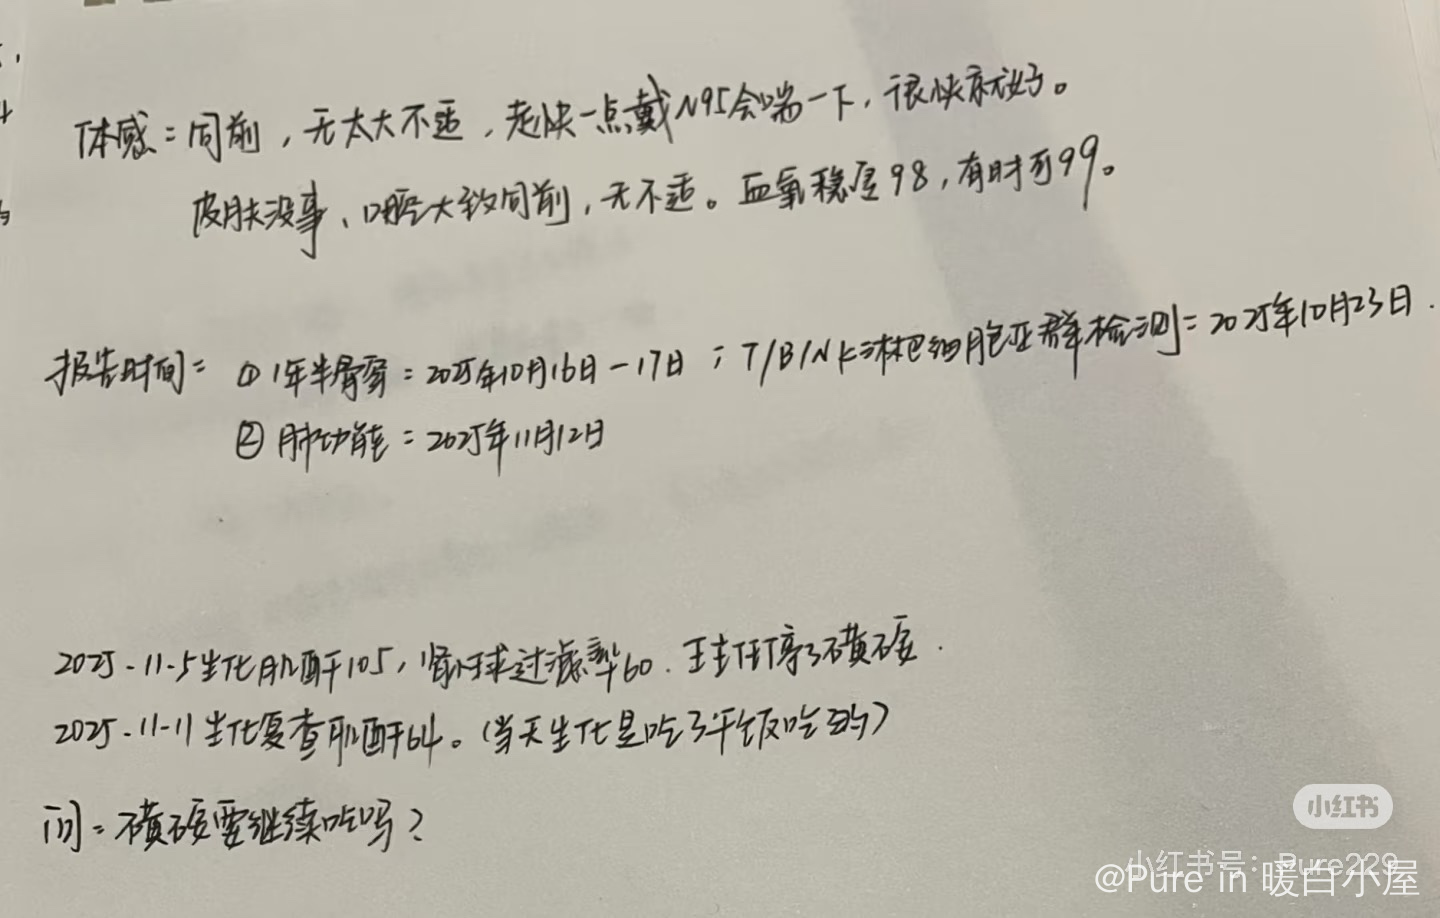 体感：同前，无太大不适，走快一点戴N95会喘一下，很快就好。
皮肤没事、口腔大致同前，无不适。血氧稳居98，有时可99。
报告时间：①1年半骨穿：2025年10月16日-17日；T/B/NK淋巴细胞亚群检测：2025年10月23日.
②肺功能：2025年11月12日
2025-11-5生化肌酐105，肾小球过滤率60.王主任停了磺胺.
2025-11-11生化复查肌酐64。（当天生化是吃了午饭吃的）
问：磺胺要继续吃吗？
小红书
小红书号：Pure229
@Pure in 暖白小屋